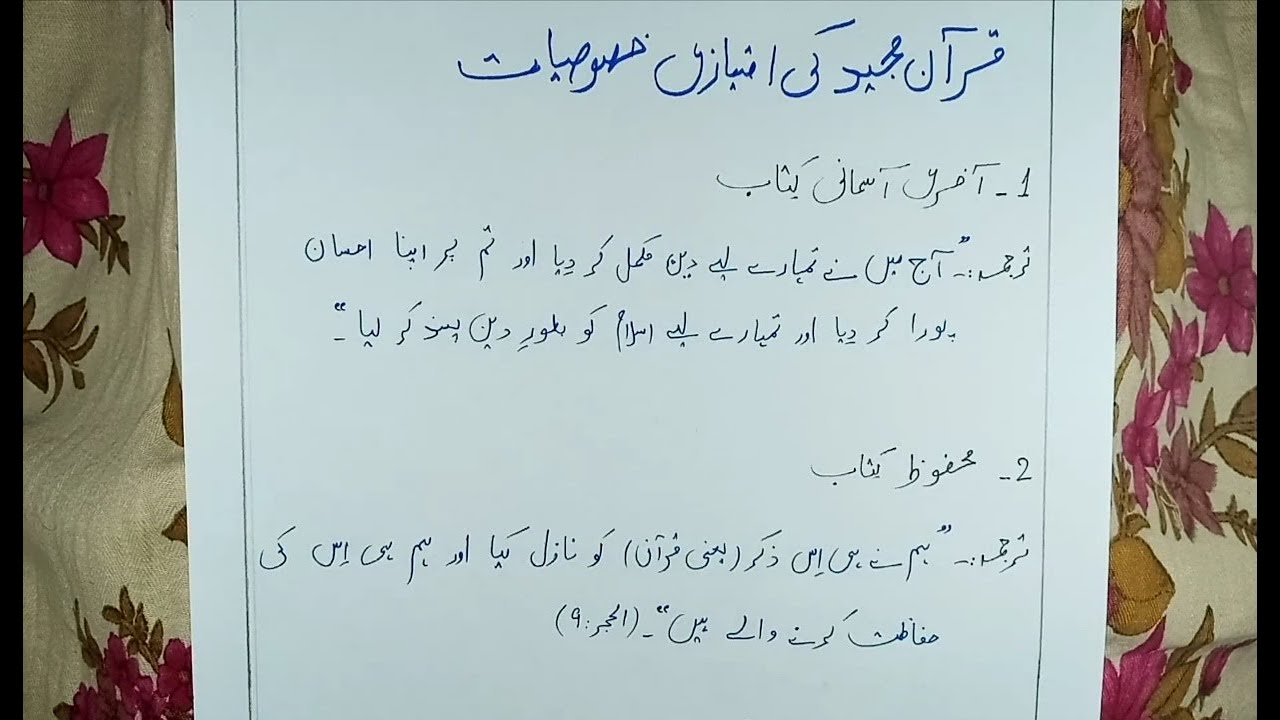 قرآن مجید کی امتیازی خصوصیات
1- آخری آسمانی کتاب
ترجمہ:۔ "آج میں نے تمہارے لیے دین مکمل کر دیا اور تم پر اپنا احسان
پورا کر دیا اور تمہارے لیے اسلام کو بطورِ دین پسند کر لیا"۔
2- محفوظ کتاب
ترجمہ:۔ "ہم نے ہی اِس ذکر (یعنی قرآن) کو نازل کیا اور ہم ہی اِس کی
حفاظت کرنے والے ہیں"۔ (الحجر:۹)